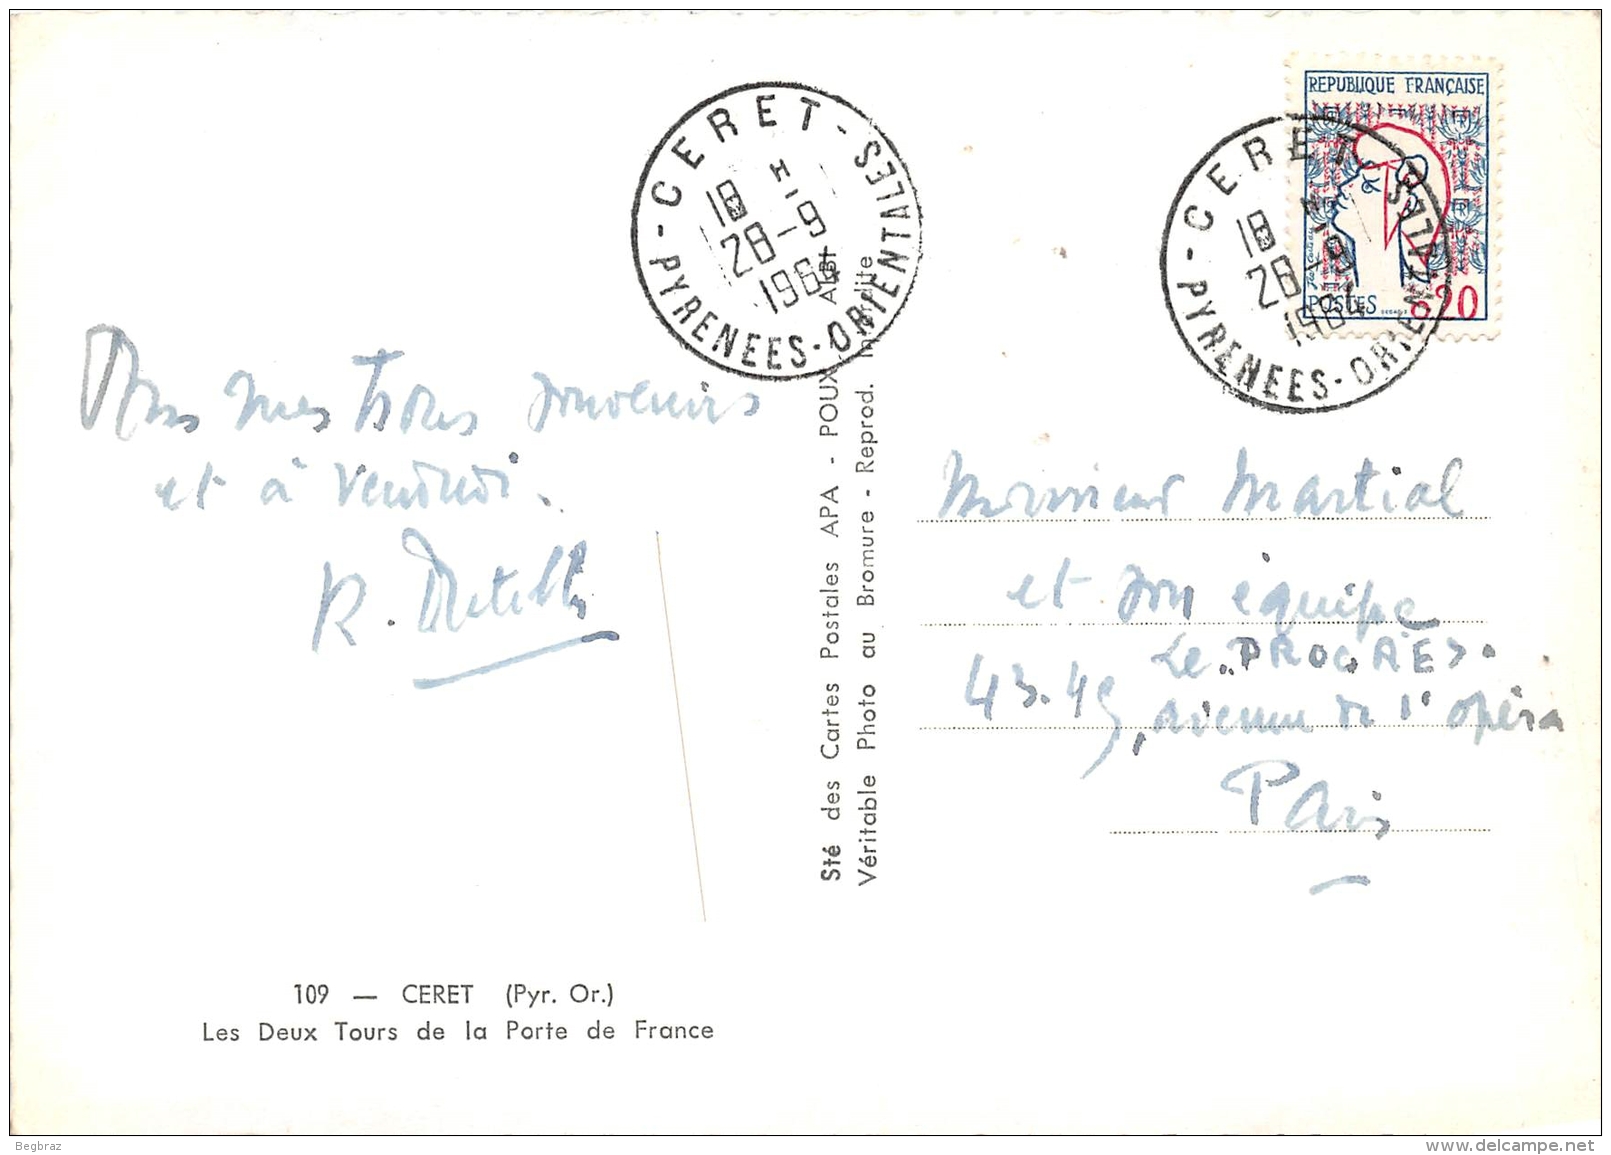 REPUBLIQUE FRANÇAISE
POSTES 0,20
CERET - PYRENEES-ORIENTALES
18 H
28-9
1964
CERET - PYRENEES-ORIENTALES
18 H
28-9
1964
mes bons souvenirs
et à vendredi.
R.
Monsieur Martial
et son équipe
Le PROGRÈS.
43.45, avenue de l'opéra
Paris
Sté des Cartes Postales APA - POUX ALBI
Véritable Photo au Bromure - Reprod. interdite
109 — CERET (Pyr. Or.)
Les Deux Tours de la Porte de France
Begbraz
www.delcampe.net